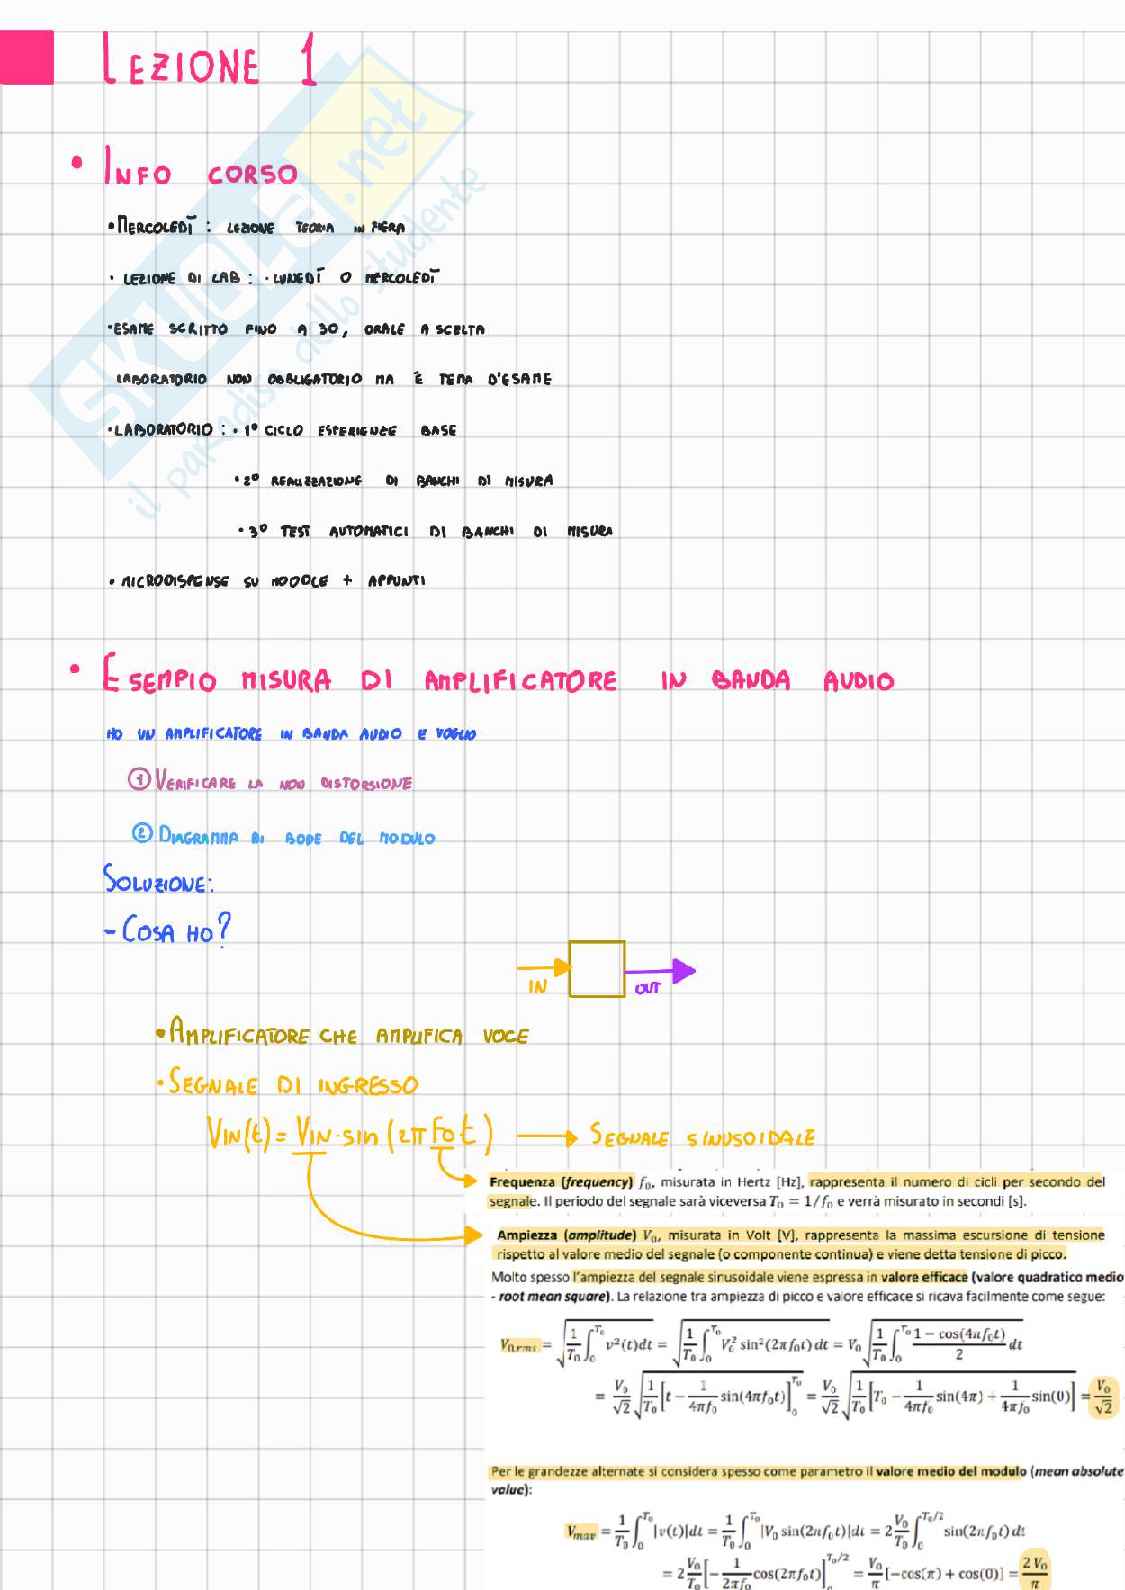 LEZIONE 1
• INFO CORSO
• MERCOLEDÌ : LEZIONE TEORIA IN FIERA
• LEZIONE DI LAB : • LUNEDÌ O MERCOLEDÌ
• ESAME SCRITTO FINO A 30, ORALE A SCELTA
LABORATORIO NON OBBLIGATORIO MA È TEMA D'ESAME
• LABORATORIO : • 1° CICLO ESPERIENZE BASE
• 2° REALIZZAZIONE DI BANCHI DI MISURA
• 3° TEST AUTOMATICI DI BANCHI DI MISURA
• MICRODISPENSE SU MOODLE + APPUNTI
• ESEMPIO MISURA DI AMPLIFICATORE IN BANDA AUDIO
HO UN AMPLIFICATORE IN BANDA AUDIO E VOGLIO
① VERIFICARE LA NON DISTORSIONE
② DIAGRAMMA DI BODE DEL MODULO
SOLUZIONE:
- COSA HO?
IN OUT
• AMPLIFICATORE CHE AMPLIFICA VOCE
• SEGNALE DI INGRESSO
VIN(t) = VIN · sin (2π f0 t) → SEGNALE SINUSOIDALE
Frequenza (frequency) f₀, misurata in Hertz [Hz], rappresenta il numero di cicli per secondo del
segnale. Il periodo del segnale sarà viceversa T₀ = 1/f₀ e verrà misurato in secondi [s].
Ampiezza (amplitude) V₀, misurata in Volt [V], rappresenta la massima escursione di tensione
rispetto al valore medio del segnale (o componente continua) e viene detta tensione di picco.
Molto spesso l'ampiezza del segnale sinusoidale viene espressa in valore efficace (valore quadratico medio
- root mean square). La relazione tra ampiezza di picco e valore efficace si ricava facilmente come segue:
V₀rms = √(1/T₀ ∫₀^T₀ v²(t)dt) = √(1/T₀ ∫₀^T₀ V₀² sin²(2πf₀t) dt) = V₀ √(1/T₀ ∫₀^T₀ (1 − cos(4πf₀t))/2 dt)
= V₀/√2 √(1/T₀ [t − 1/(4πf₀) sin(4πf₀t)]₀^T₀) = V₀/√2 √(1/T₀ [T₀ − 1/(4πf₀) sin(4π) + 1/(4πf₀) sin(0)]) = V₀/√2
Per le grandezze alternate si considera spesso come parametro il valore medio del modulo (mean absolute
value):
Vmav = 1/T₀ ∫₀^T₀ |v(t)|dt = 1/T₀ ∫₀^T₀ |V₀ sin(2πf₀t)|dt = 2 V₀/T₀ ∫₀^T₀/2 sin(2πf₀t) dt
= 2 V₀/T₀ [− 1/(2πf₀) cos(2πf₀t)]₀^T₀/2 = V₀/π [−cos(π) + cos(0)] = 2 V₀/π
SKUOLA.net
il paradiso dello studente